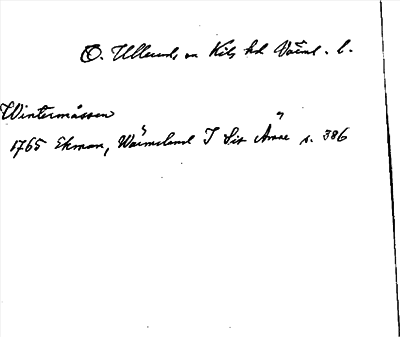 Ö. Ullerud sn Kils hd Värml. l.
Wintermåssen
1765 Ekman, Wärmeland I
s. 386